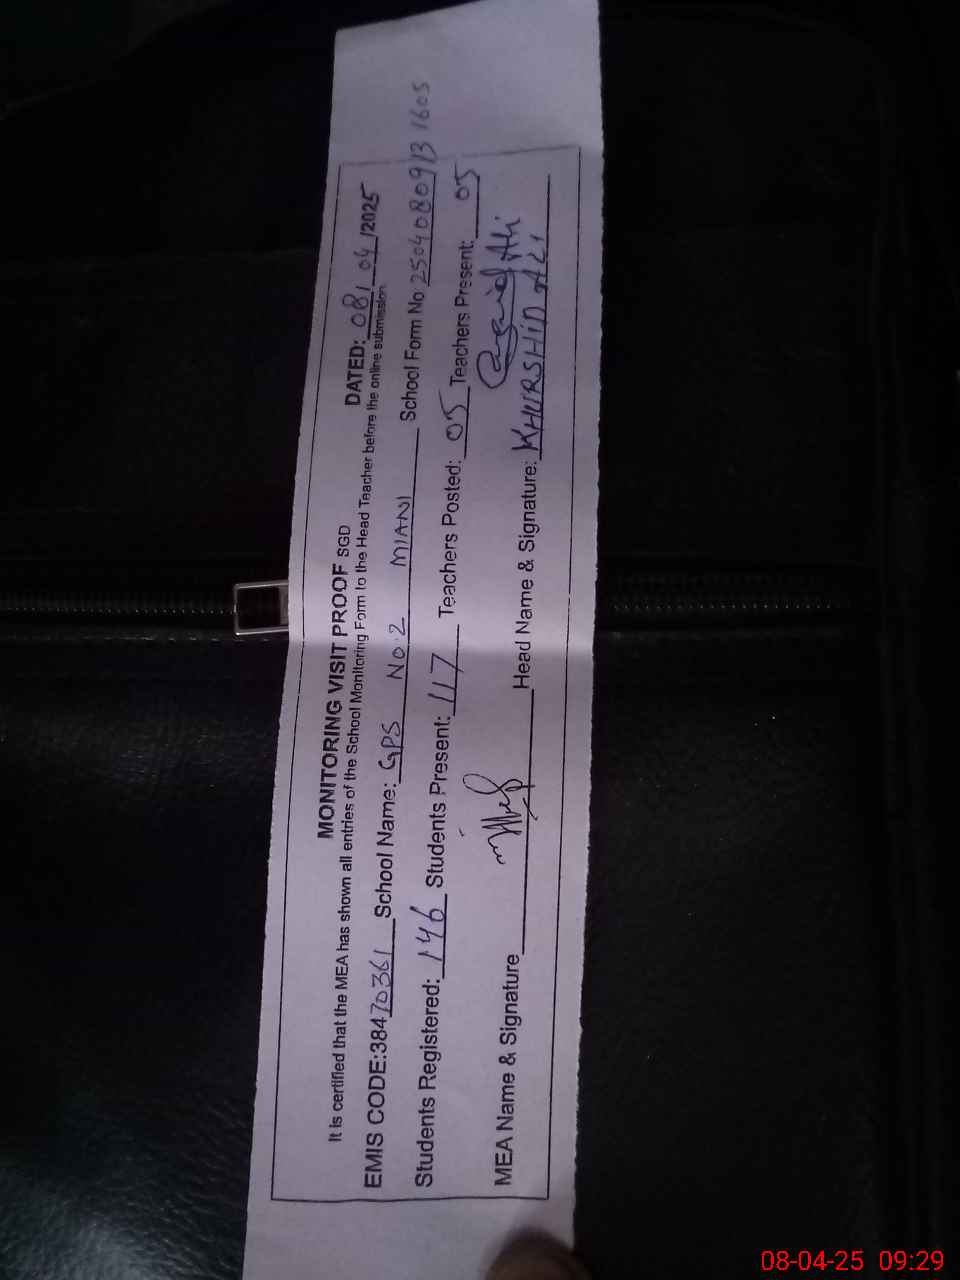 MONITORING VISIT PROOF SGD DATED: 08/04/2025
It is certified that the MEA has shown all entries of the School Monitoring Form to the Head Teacher before the online submission
EMIS CODE:38470361 School Name: GPS No.2 MIANI School Form No 25040809131605
Students Registered: 146 Students Present: 117 Teachers Posted: 05 Teachers Present: 05
MEA Name & Signature Head Name & Signature: KHURSHID ALI
08-04-25 09:29